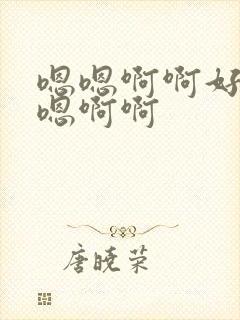 嗯嗯啊啊好
嗯啊啊
唐晓荣